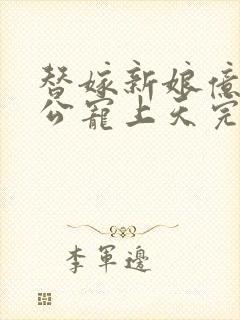 替嫁新娘億
公寵上天完
李軍邊